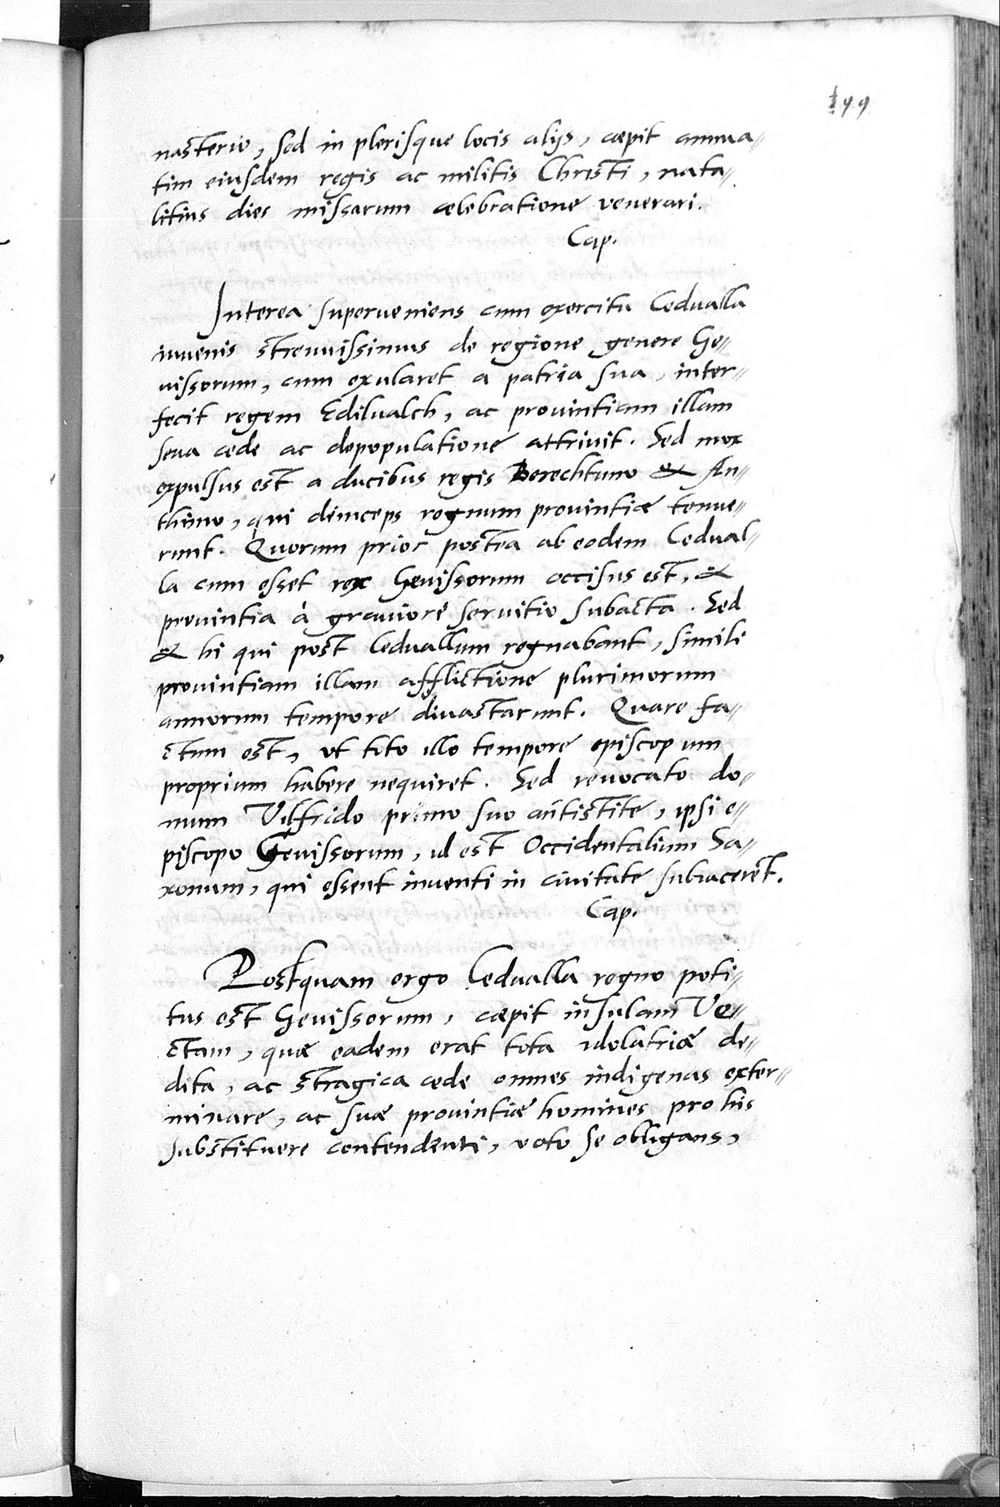 199
nasterio, sed in plerisque locis alijs, cæpit annua-
tim eiusdem regis ac militis Christi, nata-
litius dies missarum celebratione venerari.
Cap.
Interea superueniens cum exercitu Cedualla
iuuenis strenuissimus de regione, genere Ge-
uissorum, cum exularet a patria sua, inter-
fecit regem Edilualch, ac prouintiam illam
seua cæde ac depopulatione attriuit. Sed mox
expulsus est a ducibus regis Berechtuno & An-
thimo, qui deinceps regnum prouintiæ tenue-
runt. Quorum prior postea ab eodem Cedual-
la cum esset rex Geuissorum occisus est, &
prouintia à grauiore seruitio subacta. Sed
& hi qui post Ceduallum regnabant, simili
prouintiam illam afflictione plurimorum
annorum tempore diuastarunt. Quare fa-
ctum est, vt toto illo tempore episcopum
proprium habere nequiret. Sed reuocato do-
mum Vilfrido primo suo antistite, ipsi e-
piscopo Geuissorum, id est Occidentalium Sa-
xonum, qui essent inuenti in ciuitate subiacerēt.
Cap.
Postquam ergo Cedualla regno poti-
tus est Geuissorum, cæpit insulam Ve-
ctam, quæ eadem erat tota idolatriæ de-
dita, ac stragica cæde omnes indigenas exter-
minare, ac suæ prouintiæ homines pro his
substituere contendenti, voto se obligans,